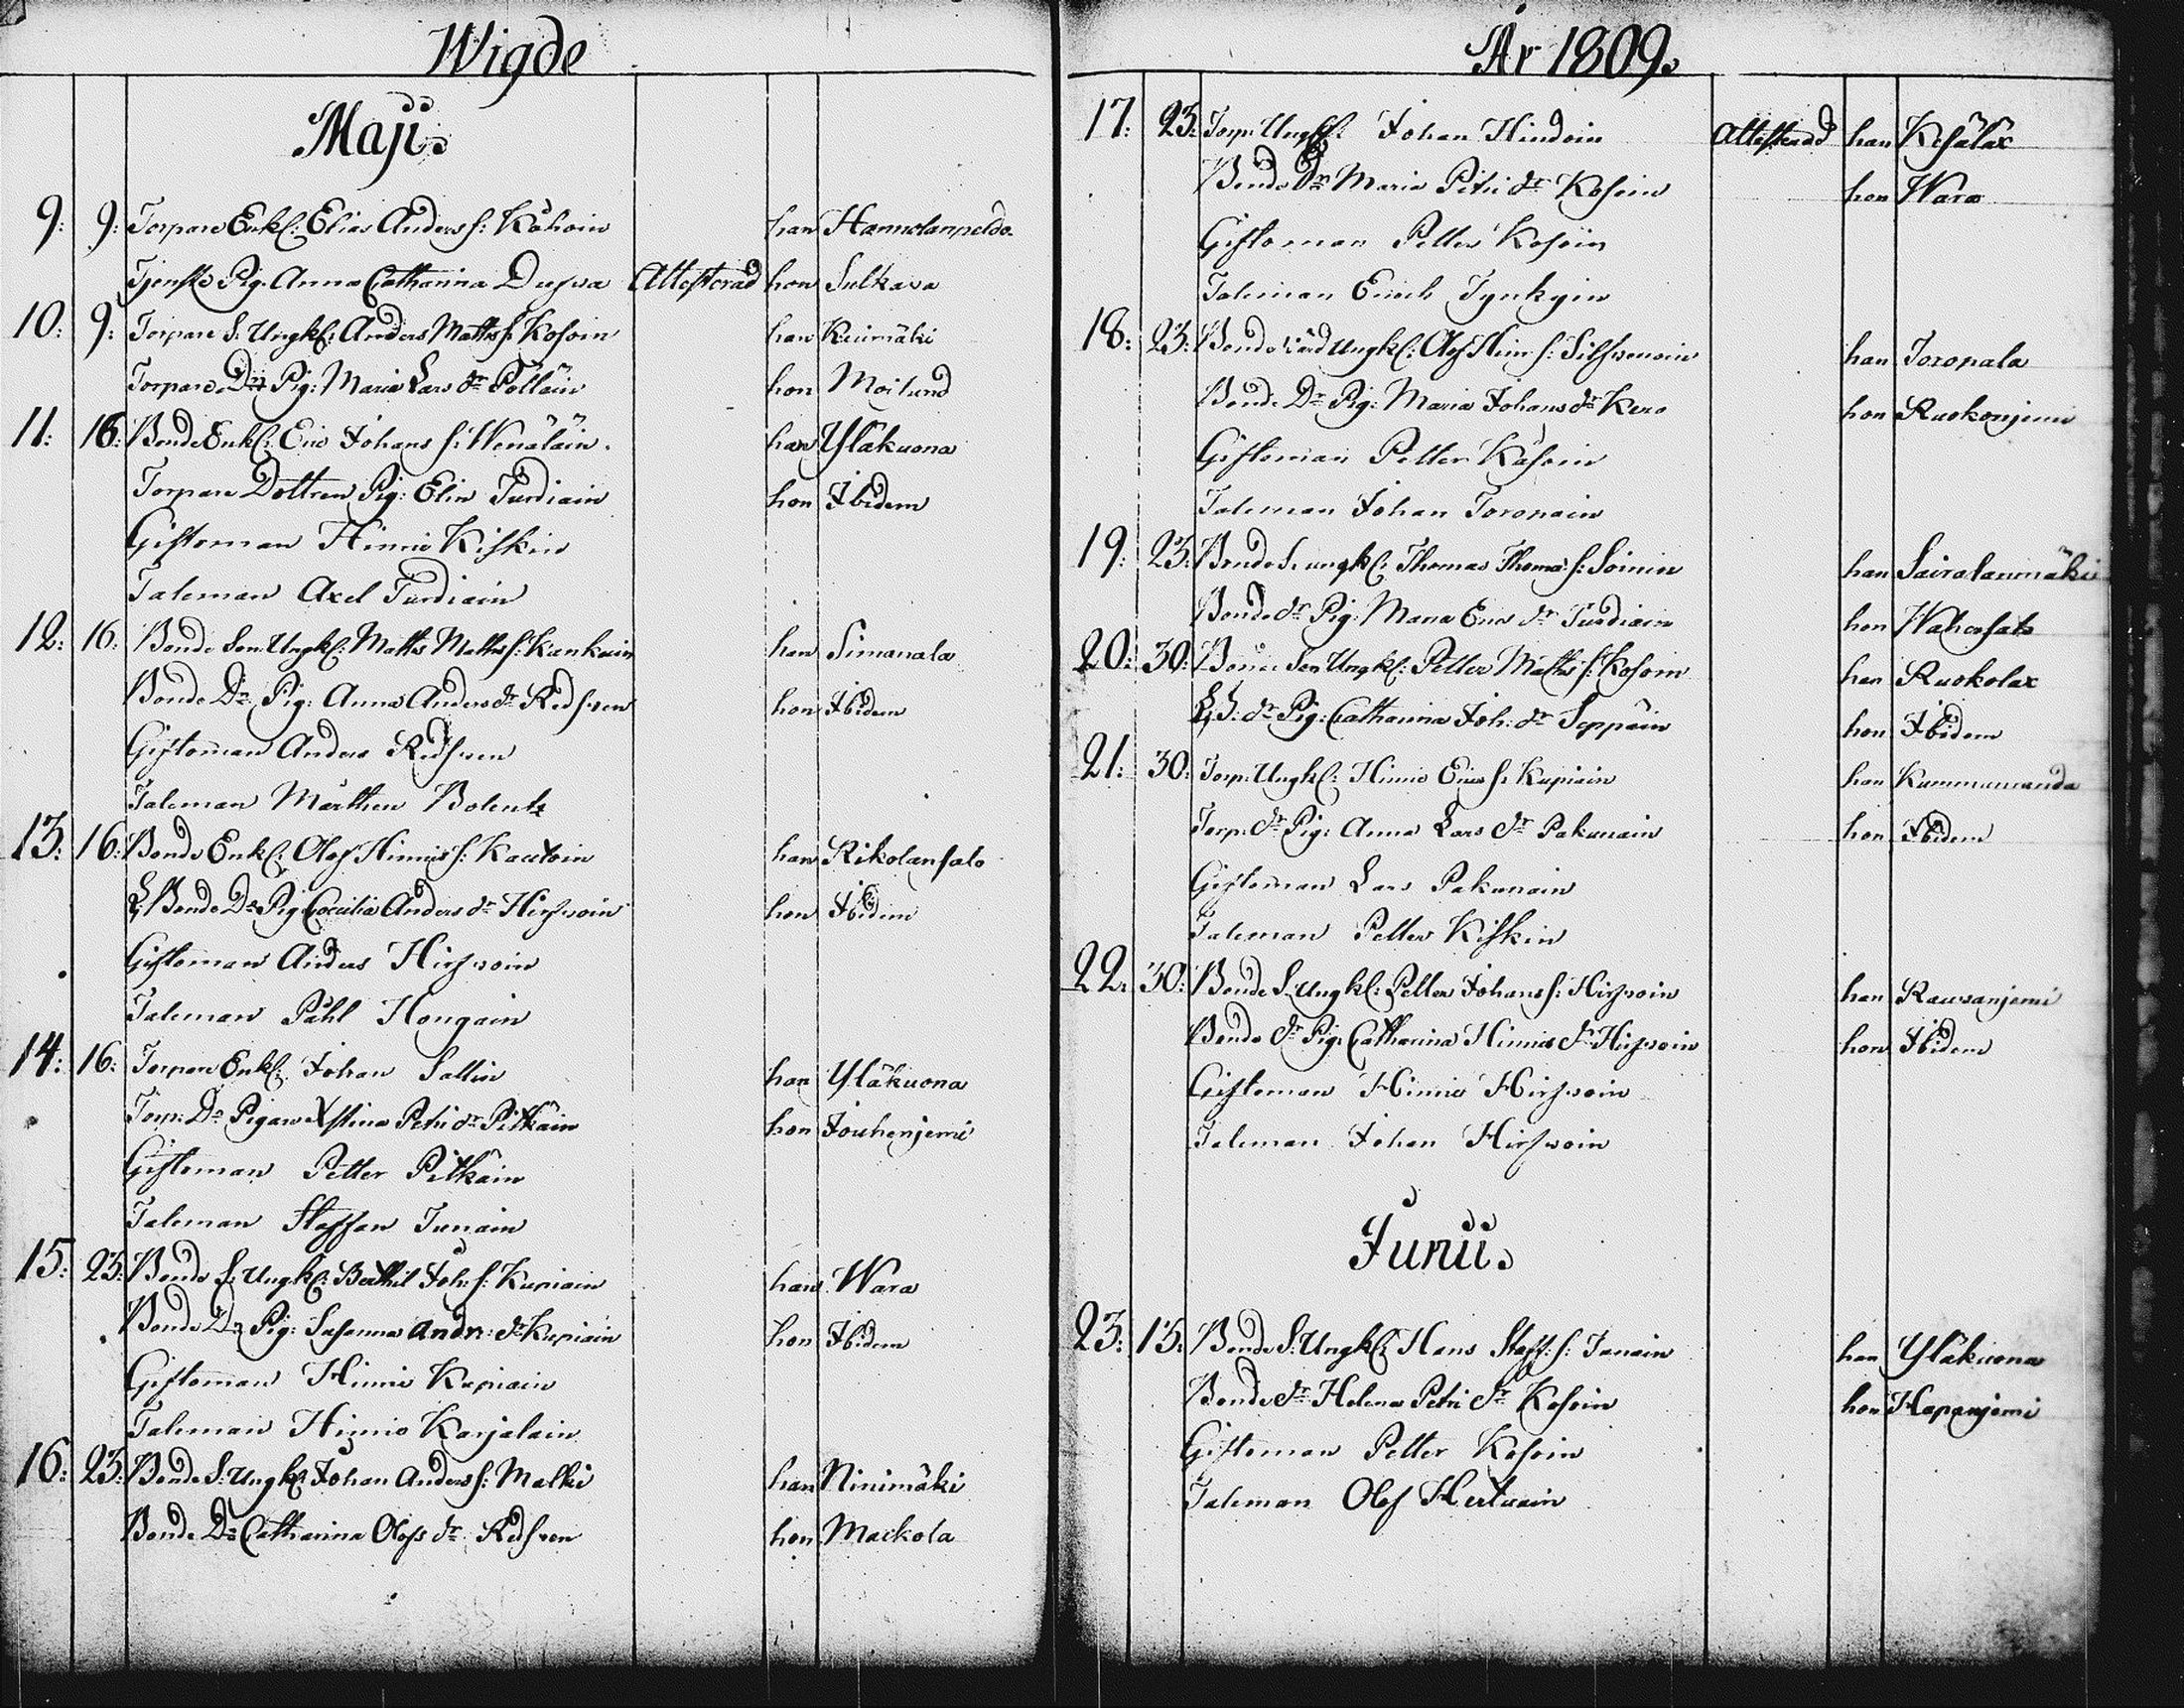 Wigde
Maji.
9: 9: Torpare Enkl: Elias Anders s: Kåhoin han Hannolanpeldo
Tjenste Pig. Anna Catharina Duswa Attesterad hon Sulkava
10: 9: Torpare S: Ungkl: Anders Matts s: Kosoin han Reimäki
Torpare Dr Pig: Maria Lars dr Pölläin hon Moilund
11: 16: Bonde Enkl: Eric Johans s: Wenäläin. han Yläkuona
Torpare Dottren Pig: Elin Turdiain hon Ibidem
Giftoman Hinric Kiskin
Taleman Axel Turdiain
12: 16: Bonde Son Ungkl: Matts Matts s: Kankain han Simanala
Bonde Dr Pig: Anna Anders dr Redsven hon Ibidem
Giftoman Anders Redsven
Taleman Mårthen Bolentz
13: 16: Bonde Enkl: Olof Hinrics s: Kautoin han Rikolansalo
Bonde Dr Pig Cæcilia Anders dr Hirswoin hon Ibidem
Giftoman Anders Hirswoin
Taleman Påhl Hongain
14: 16: Torpare Enkl: Johan Sallin han Yläkuona
Torp: Dr Pigan Xstina Petri dr Pitkäin hon Jouhenjemi
Giftoman Petter Pitkäin
Taleman Staffan Tunain
15: 23: Bonde S: Ungkl: Berthil Joh: s: Kupiain han Wara
Bonde Dr Pig: Susanna Andr: dr Kupiain hon Ibidem
Giftoman Hinric Kupiain
Taleman Hinric Karjalain
16: 23: Bonde S: Ungkl: Johan Anders s: Malki han Ninimäki
Bonde Dr Catharina Olofs dr Redsven hon Mackola
År 1809.
17: 23: Torp: Ungkl: Johan Hindoin Attesterad han Kesälax
Bonde Dr Maria Petri dr Kosoin hon Wara
Giftoman Petter Kosoin
Taleman Erich Tynkyin
18: 23: Bonde Ungkl: Olof Hinr s: Silfwenoin han Toropala
Bonde Dr Pig: Maria Johans dr Kero hon Ruokonjemi
Giftoman Petter Kåsoin
Taleman Johan Toropain
19: 23: Bonde S: ungkl: Thomas Thoma s: Soinin han Sairalanmäki
Bonde dr Pig: Maria Erics dr Turdiain hon Wahersalo
20: 30: Bonde Son Ungkl: Petter Matts s: Kosoin han Ruokolax
dr Pig: Catharina Joh: dr Seppäin hon Ibidem
21: 30: Torp: Ungkl: Hinric Erics s: Kupiain han
Torp: dr Pig: Anna Lars dr Pakunain hon Ibidem
Giftoman Lars Pakunain
Taleman Petter Kiskin
22: 30: Bonde S: Ungkl: Petter Johans s: Hirswoin han Rauvanjemi
Bonde dr Pig: Catharina Hinrics dr Hirswoin hon Ibidem
Giftoman Hinric Hirswoin
Taleman Johan Hirswoin
Junii.
23: 13: Bonde S: Ungkl: Hans Staff: s: Tunain han Yläkuona
Bonde dr Helena Petri dr Kosoin hon Hapanjemi
Giftoman Petter Kosoin
Taleman Olof Hertuain